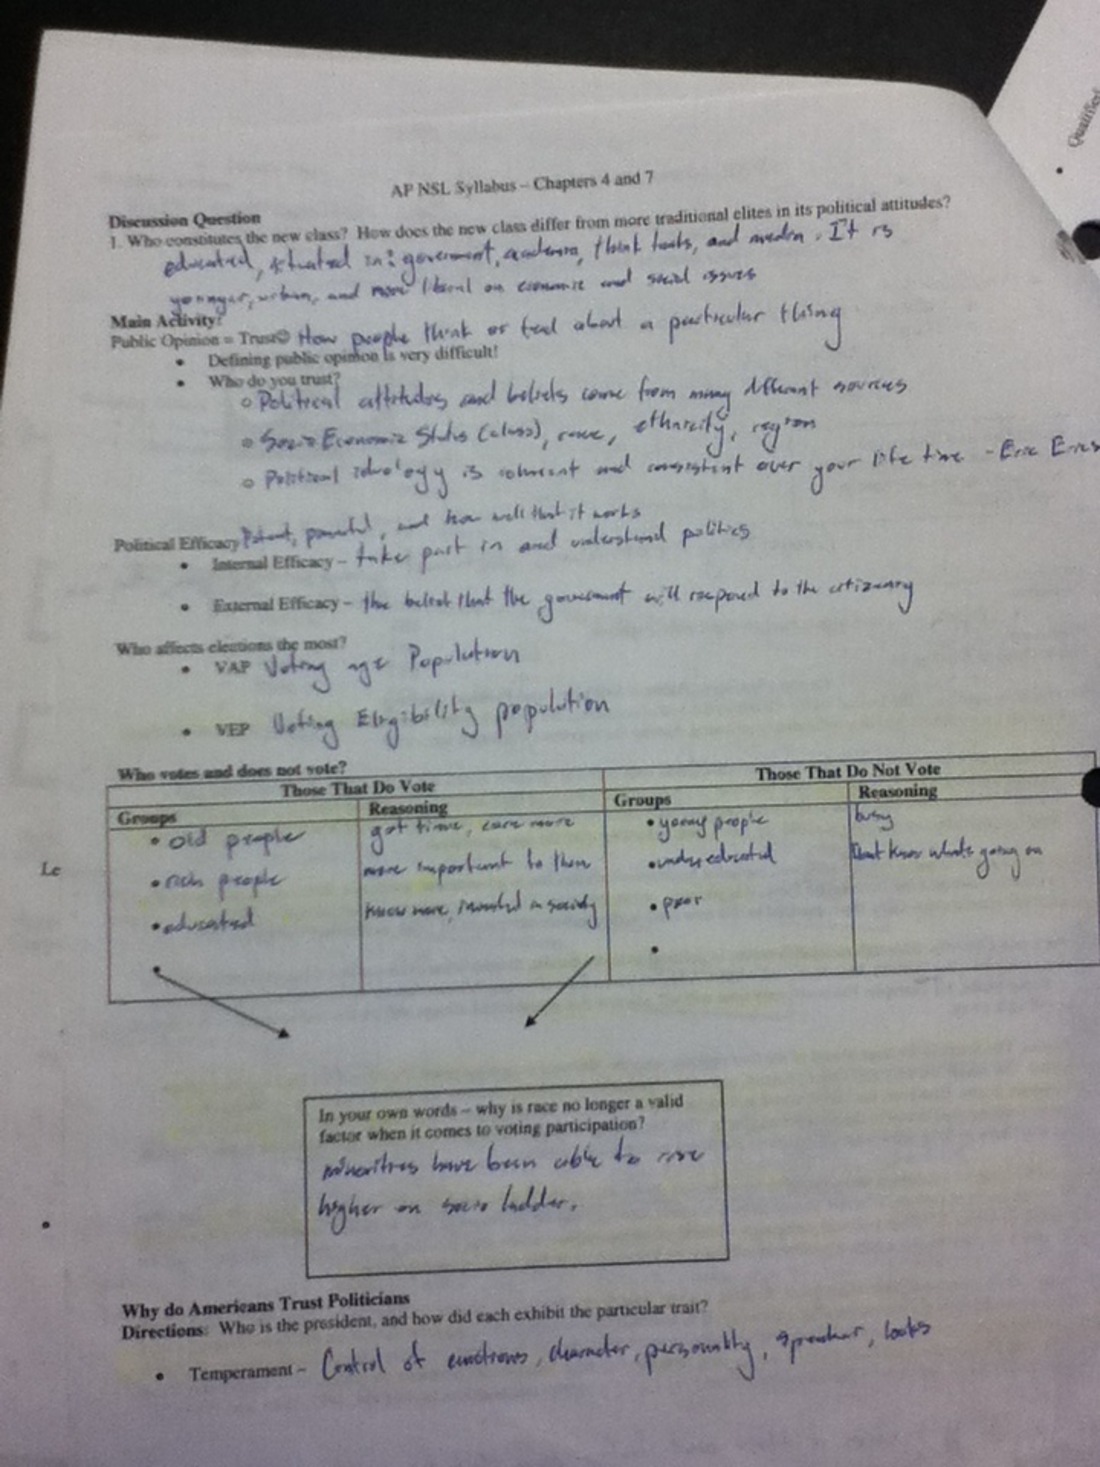 Qualified
AP NSL Syllabus – Chapters 4 and 7
Discussion Question
1. Who constitutes the new class? How does the new class differ from more traditional elites in its political attitudes?
educated, situated in: government, academia, think tanks, and media. It is
younger, urban, and more liberal on economic and social issues
Main Activity:
Public Opinion = Trust☺ How people think or feel about a particular thing
• Defining public opinion is very difficult!
• Who do you trust?
○ Political attitudes and beliefs come from many different sources
○ Socio Economic Status (class), race, ethnicity, region
○ Political ideology is coherent and consistent over your life time - Eric
Political Efficacy Potent, powerful, and how well that it works
• Internal Efficacy – take part in and understand politics
• External Efficacy – the belief that the government will respond to the citizenry
Who affects elections the most?
• VAP Voting age Population
• VEP Voting Eligibility population
Who votes and does not vote?
Those That Do Vote Those That Do Not Vote
Groups Reasoning Groups Reasoning
• old people got time, care more • young people busy
• rich people more important to them • under educated Dont know whats going on
• educated know more, invested in society • poor
Le
In your own words – why is race no longer a valid
factor when it comes to voting participation?
minorities have been able to rise
higher on socio ladder.
Why do Americans Trust Politicians
Directions: Who is the president, and how did each exhibit the particular trait?
• Temperament – Control of emotions, character, personality, speaker, looks